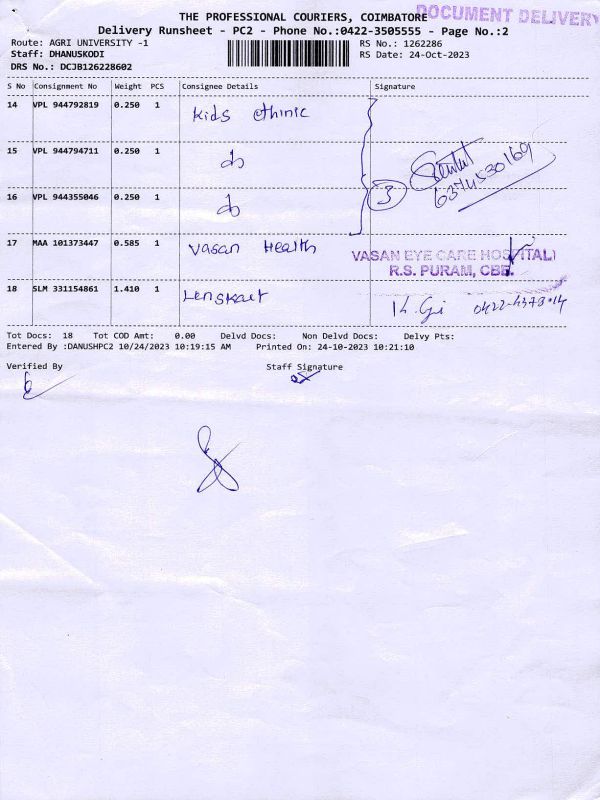 THE PROFESSIONAL COURIERS, COIMBATORE
DOCUMENT DELIVERY
Delivery Runsheet - PC2 - Phone No.:0422-3505555 - Page No.:2
Route: AGRI UNIVERSITY -1
RS No.: 1262286
Staff: DHANUSKODI
RS Date: 24-Oct-2023
DRS No.: DCJB126228602
S No Consignment No Weight PCS Consignee Details Signature
14 VPL 944792819 0.250 1 Kids ethinic
15 VPL 944794711 0.250 1 do
16 VPL 944355046 0.250 1 do
3
6374530169
17 MAA 101373447 0.585 1 Vasan Health
VASAN EYE CARE HOSPITAL
R.S. PURAM, CBE.
18 SLM 331154861 1.410 1 Lenskart
0422-4378
Tot Docs: 18 Tot COD Amt: 0.00 Delvd Docs: Non Delvd Docs: Delvy Pts:
Entered By :DANUSHPC2 10/24/2023 10:19:15 AM Printed On: 24-10-2023 10:21:10
Verified By Staff Signature